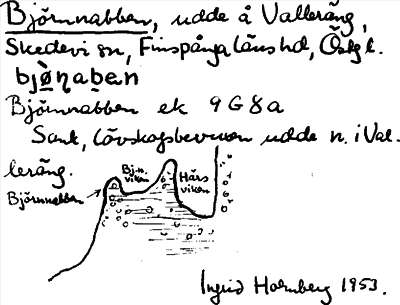 Björnnabben, udde å Valleräng,
Skedevi sn, Finspånga läns hd, Östg l.
bjø̀ṇaḅen
Björnnabben ek 9G8a
Sank, lövskogsbevuxen udde n. i Val-
leräng.
Bj.n. viken
Hårs viken
Björnnabben
Ingrid Holmberg 1953.